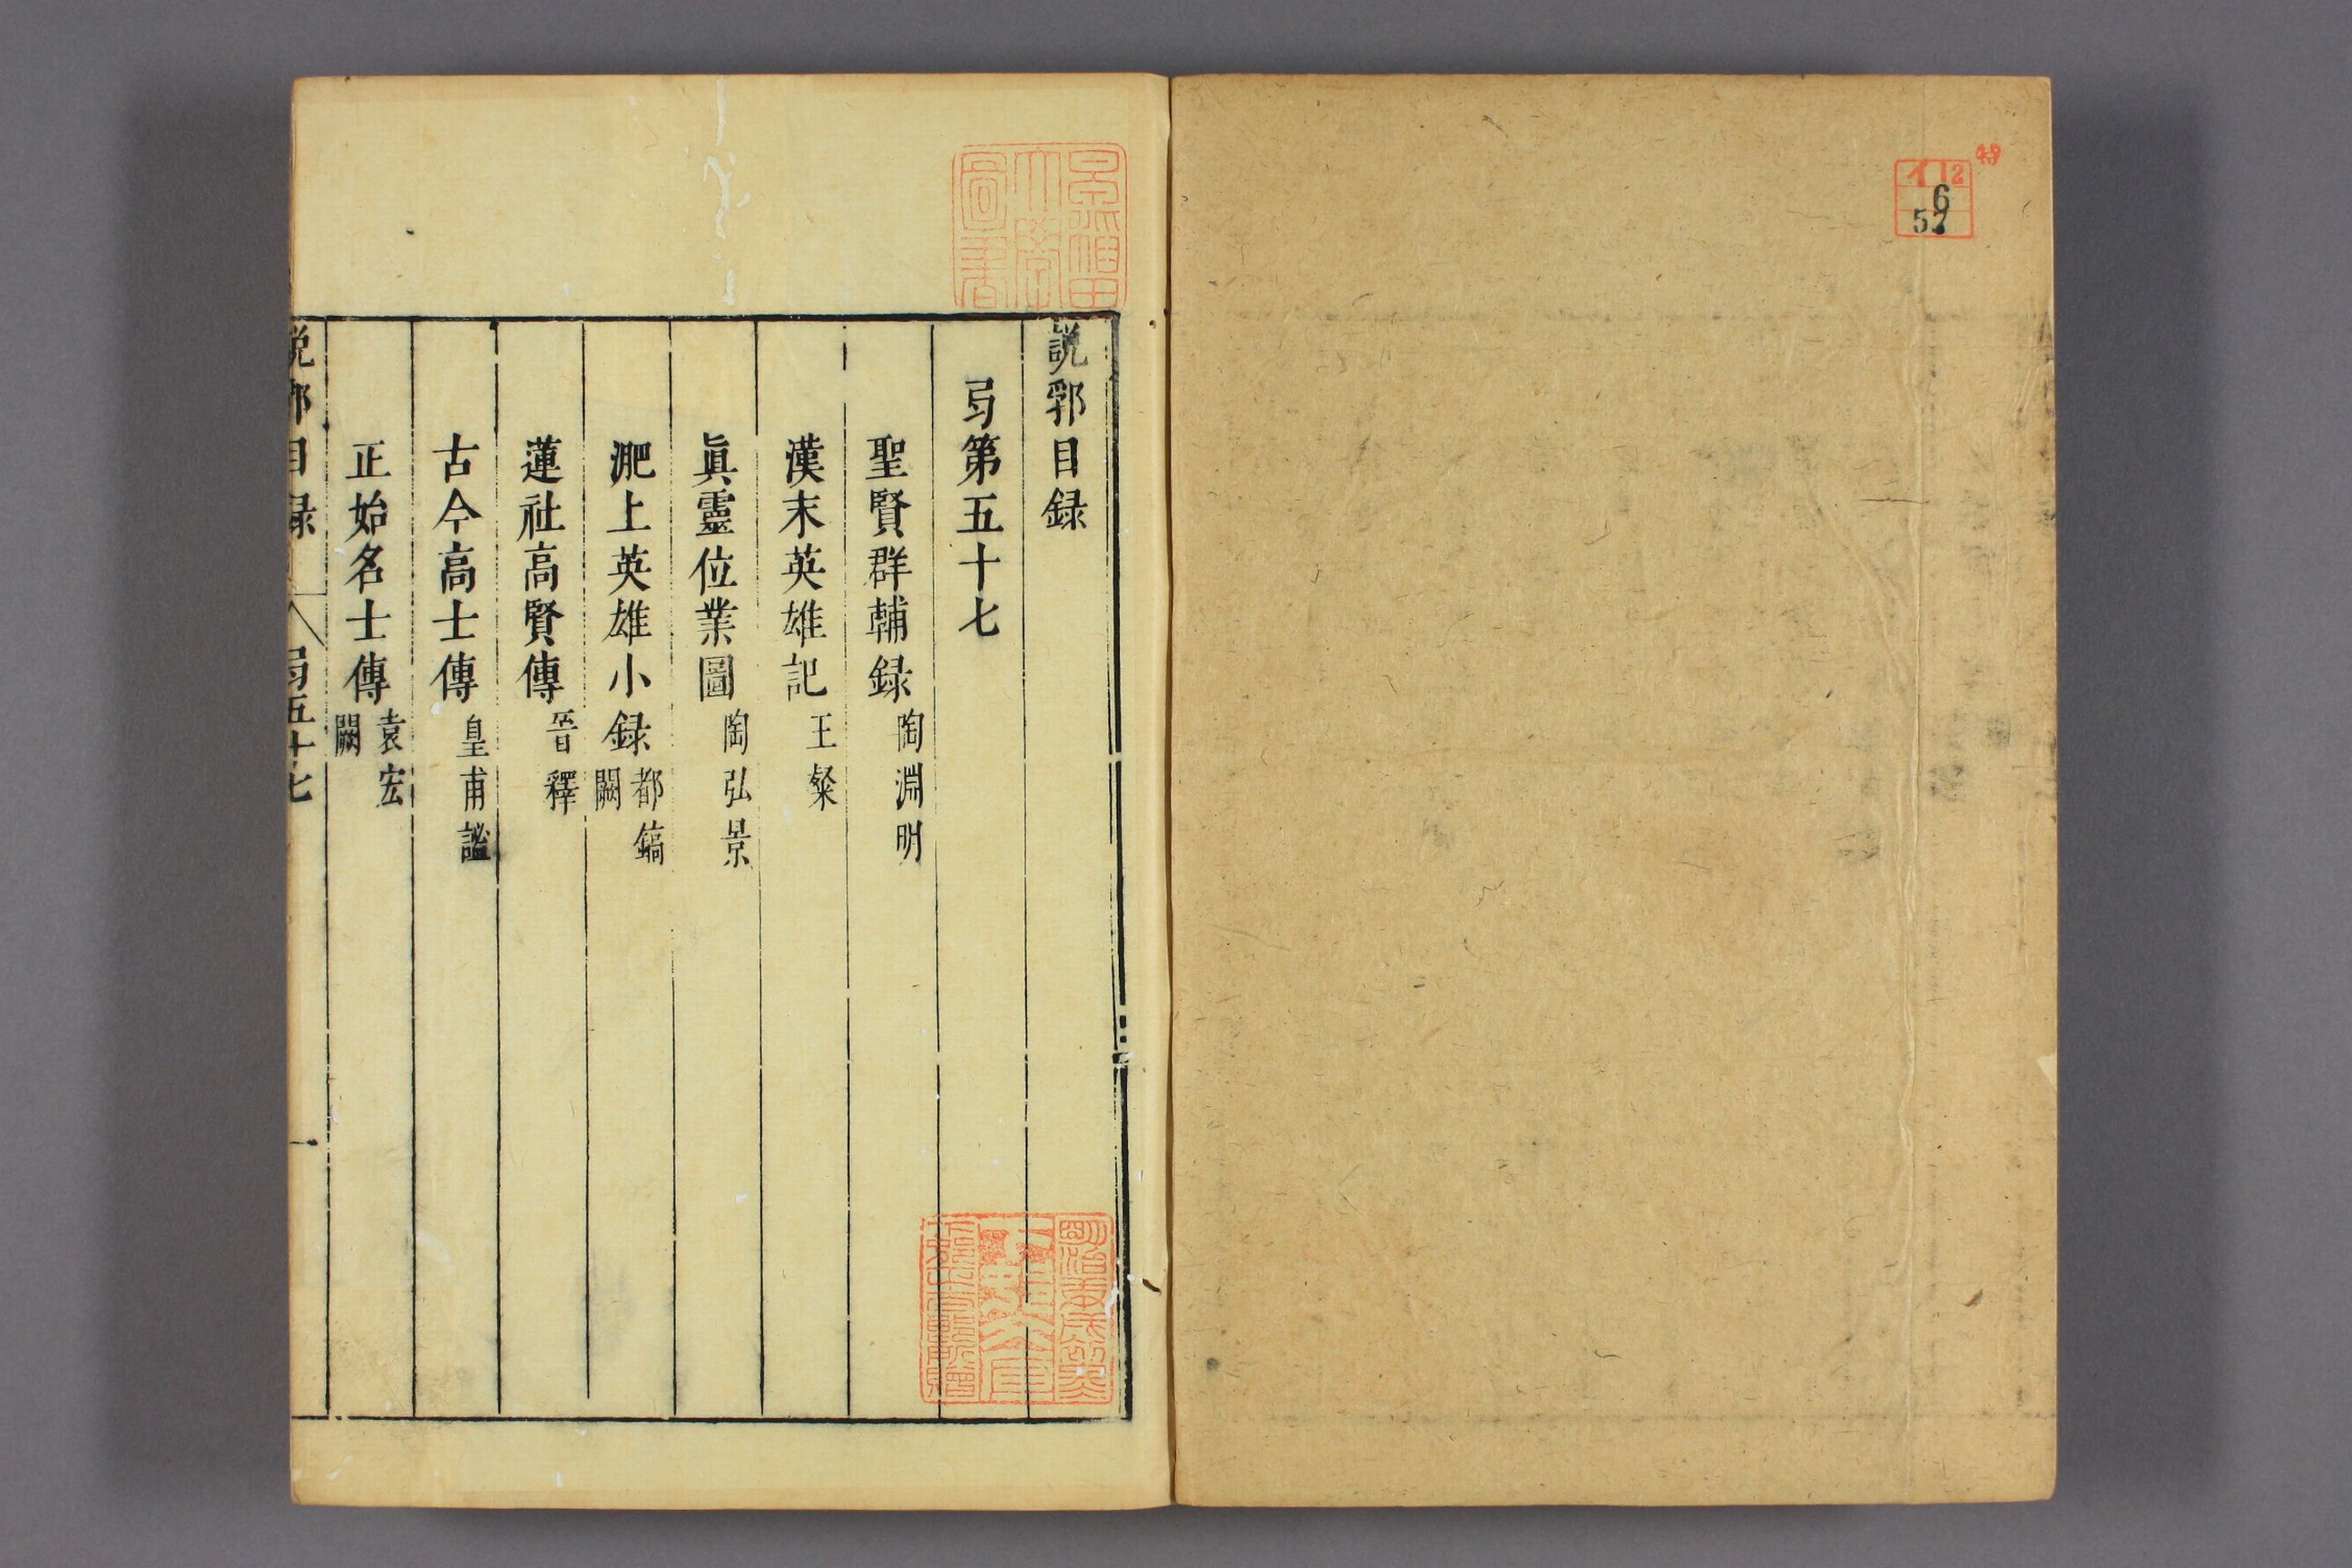 特
イ 12
6
57
說郛目録
弓第五十七
聖賢群輔録 陶淵明
漢末英雄記 王粲
眞靈位業圖 陶弘景
淝上英雄小録 都鎬 闕
蓮社高賢傳 晉釋
古今高士傳 皇甫謐
正始名士傳 袁宏 闕
說郛目録 弓五十七 一
早稲田大學圖書